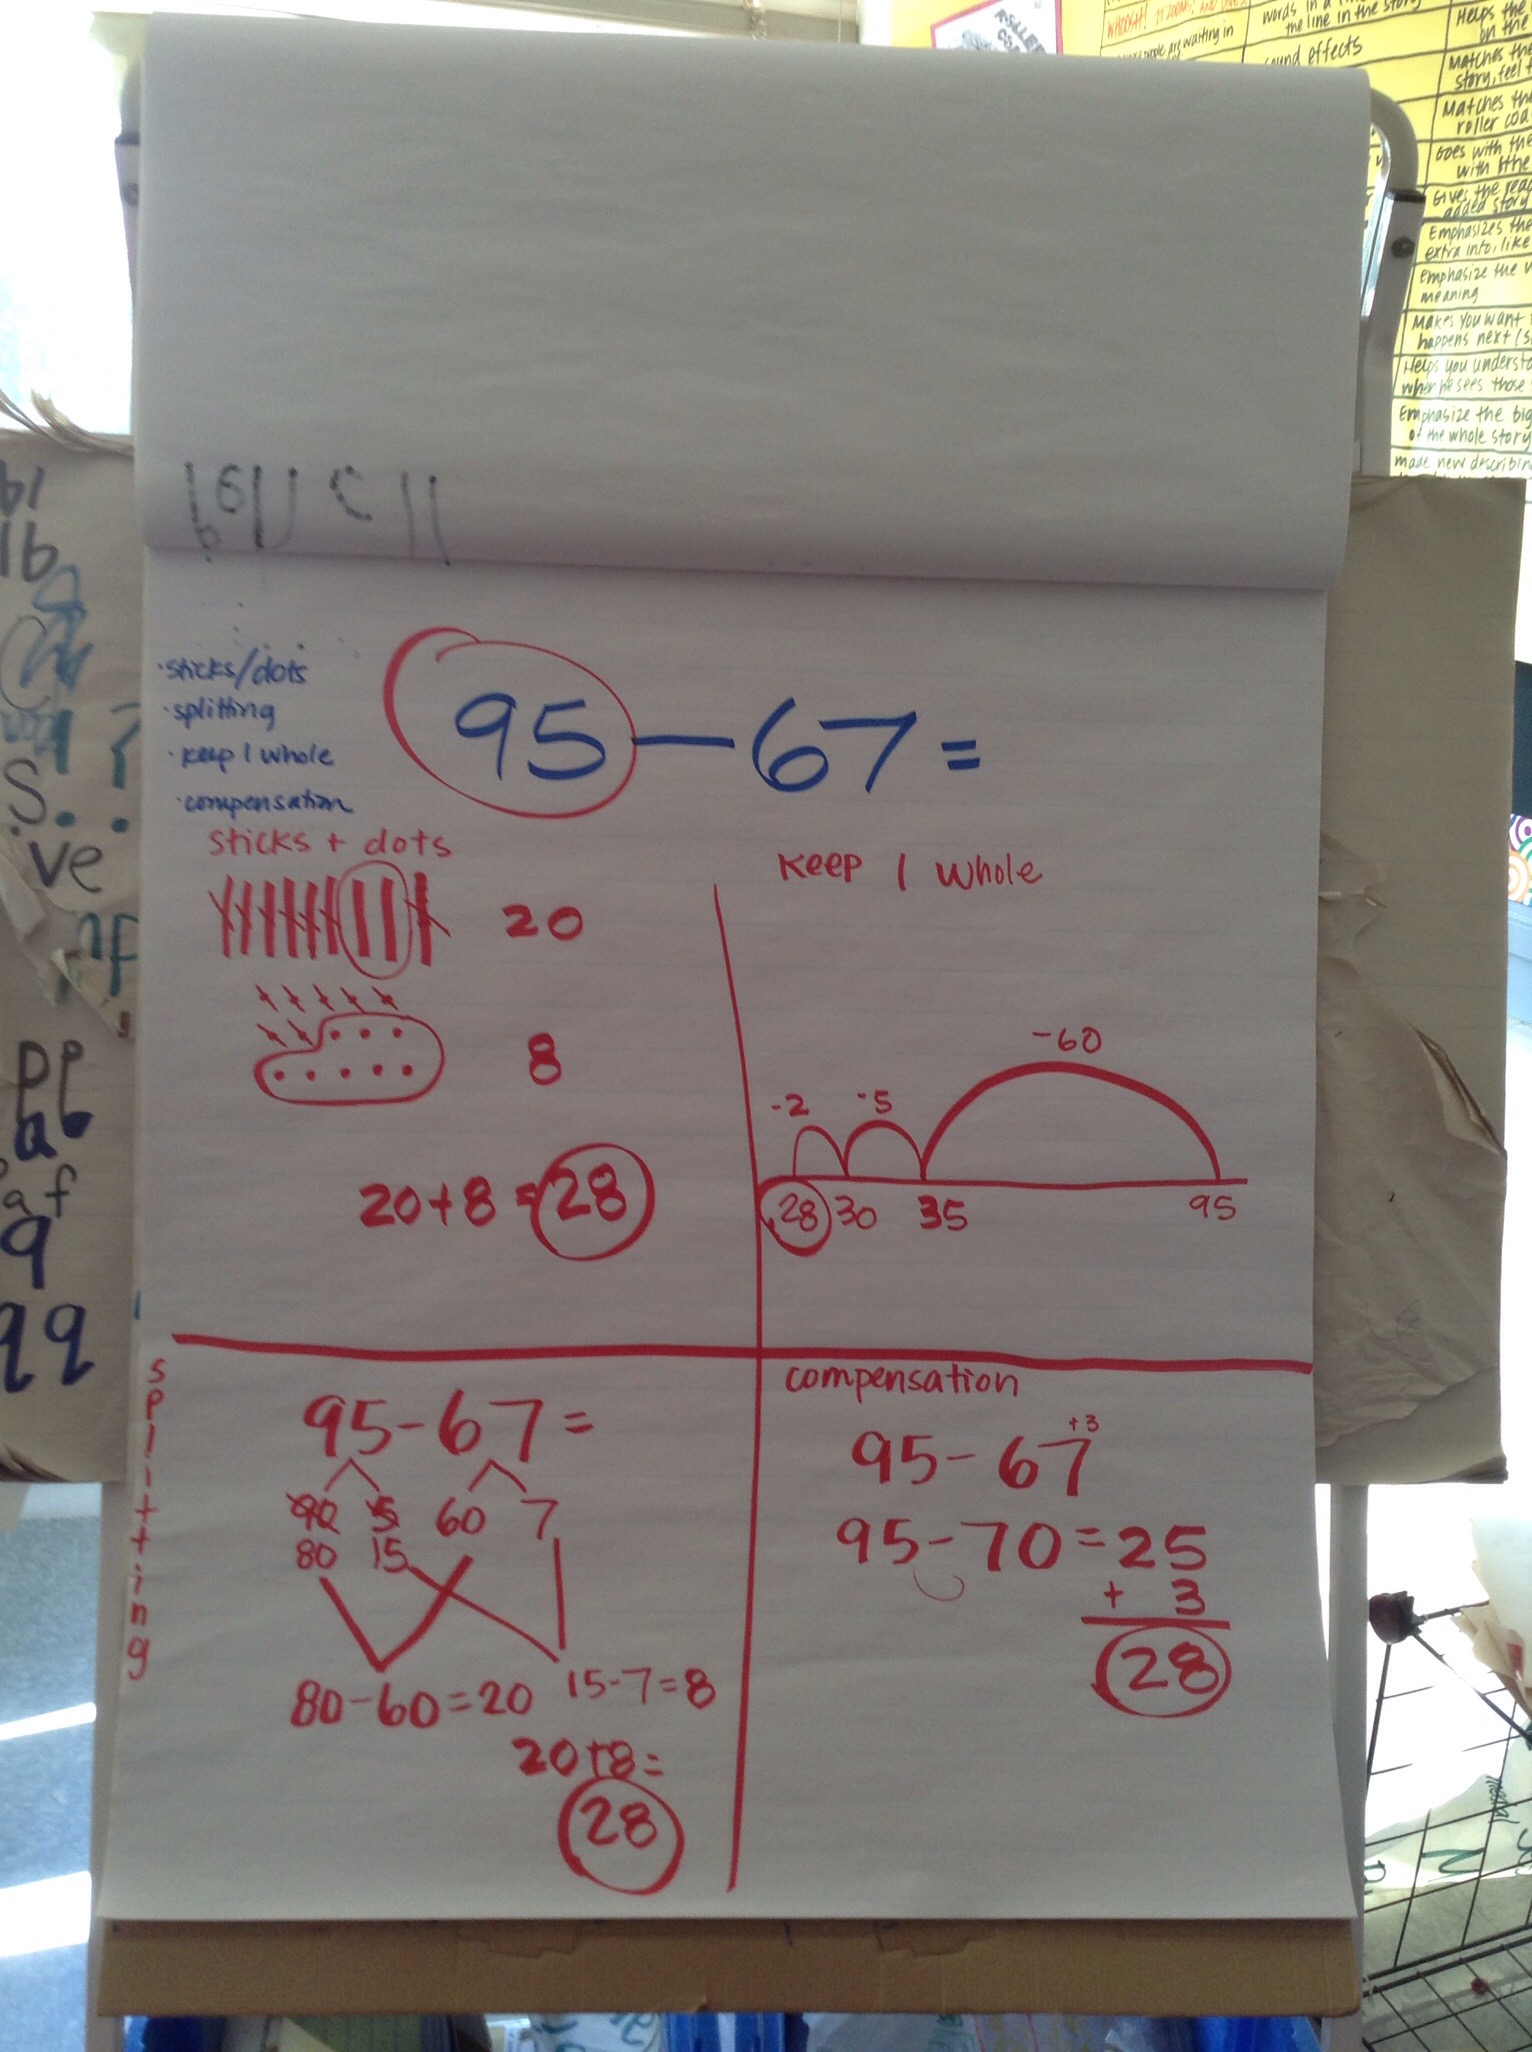 WHOOSH!
waiting in
the line in the story
sound effects
Helps the
on the
Matches the
story, feel
Matches the
roller
Goes with the
with the
Gives the
added story
Emphasizes the
extra info, like
emphasize the
meaning
Makes you want
happens next
Helps you
when he sees those
Emphasize the big
of the whole story
made new describing
· sticks/dots
· splitting
· keep 1 whole
· compensation
95 - 67 =
sticks + dots
20
8
20+8 = 28
Keep 1 whole
-60
-2 -5
28 30 35 95
splitting
95-67=
90 5 60 7
80 15
80-60=20 15-7=8
20+8=
28
compensation
95-67 +3
95-70=25
+ 3
28
ve
af
9
99